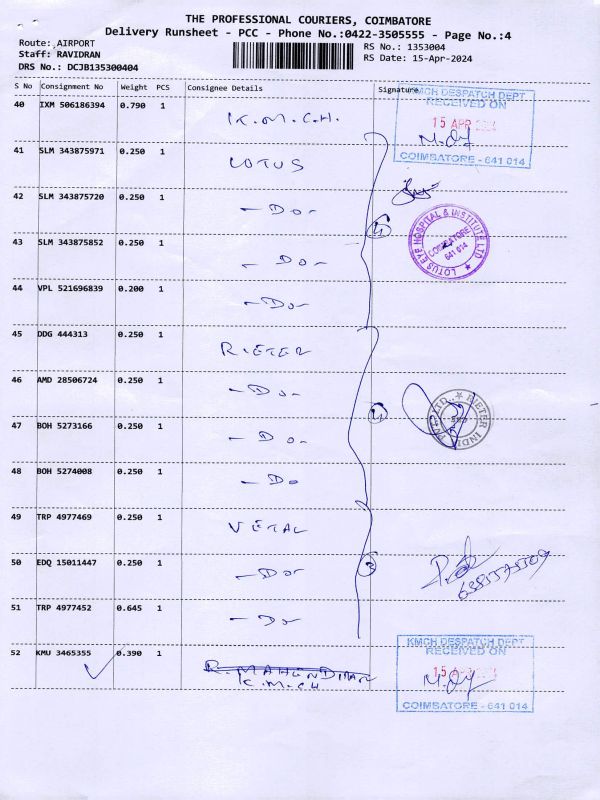 THE PROFESSIONAL COURIERS, COIMBATORE
Delivery Runsheet - PCC - Phone No.:0422-3505555 - Page No.:4
Route: AIRPORT
Staff: RAVIDRAN
DRS No.: DCJB135300404
RS No.: 1353004
RS Date: 15-Apr-2024
S No Consignment No Weight PCS Consignee Details Signature
40 IXM 506186394 0.790 1 K.M.C.H.
KMCH DESPATCH DEPT
RECEIVED ON
15 APR 2024
COIMBATORE - 641 014
41 SLM 343875971 0.250 1 LOTUS
42 SLM 343875720 0.250 1 - Do -
4
LOTUS EYE HOSPITAL & INSTITUTE LTD
COIMBATORE
641 014
43 SLM 343875852 0.250 1 - Do -
44 VPL 521696839 0.200 1 - Do -
45 DDG 444313 0.250 1 RIETER
46 AMD 28506724 0.250 1 - Do -
4
RIETER INDIA PVT. LTD.
47 BOH 5273166 0.250 1 - Do -
48 BOH 5274008 0.250 1 - Do
49 TRP 4977469 0.250 1 VETAL
50 EDQ 15011447 0.250 1 - Do -
3
51 TRP 4977452 0.645 1 - Do -
52 KMU 3465355 0.390 1 R. MAHENDIRAN
K.M.C.H
KMCH DESPATCH DEPT
RECEIVED ON
15 APR 2024
COIMBATORE - 641 014